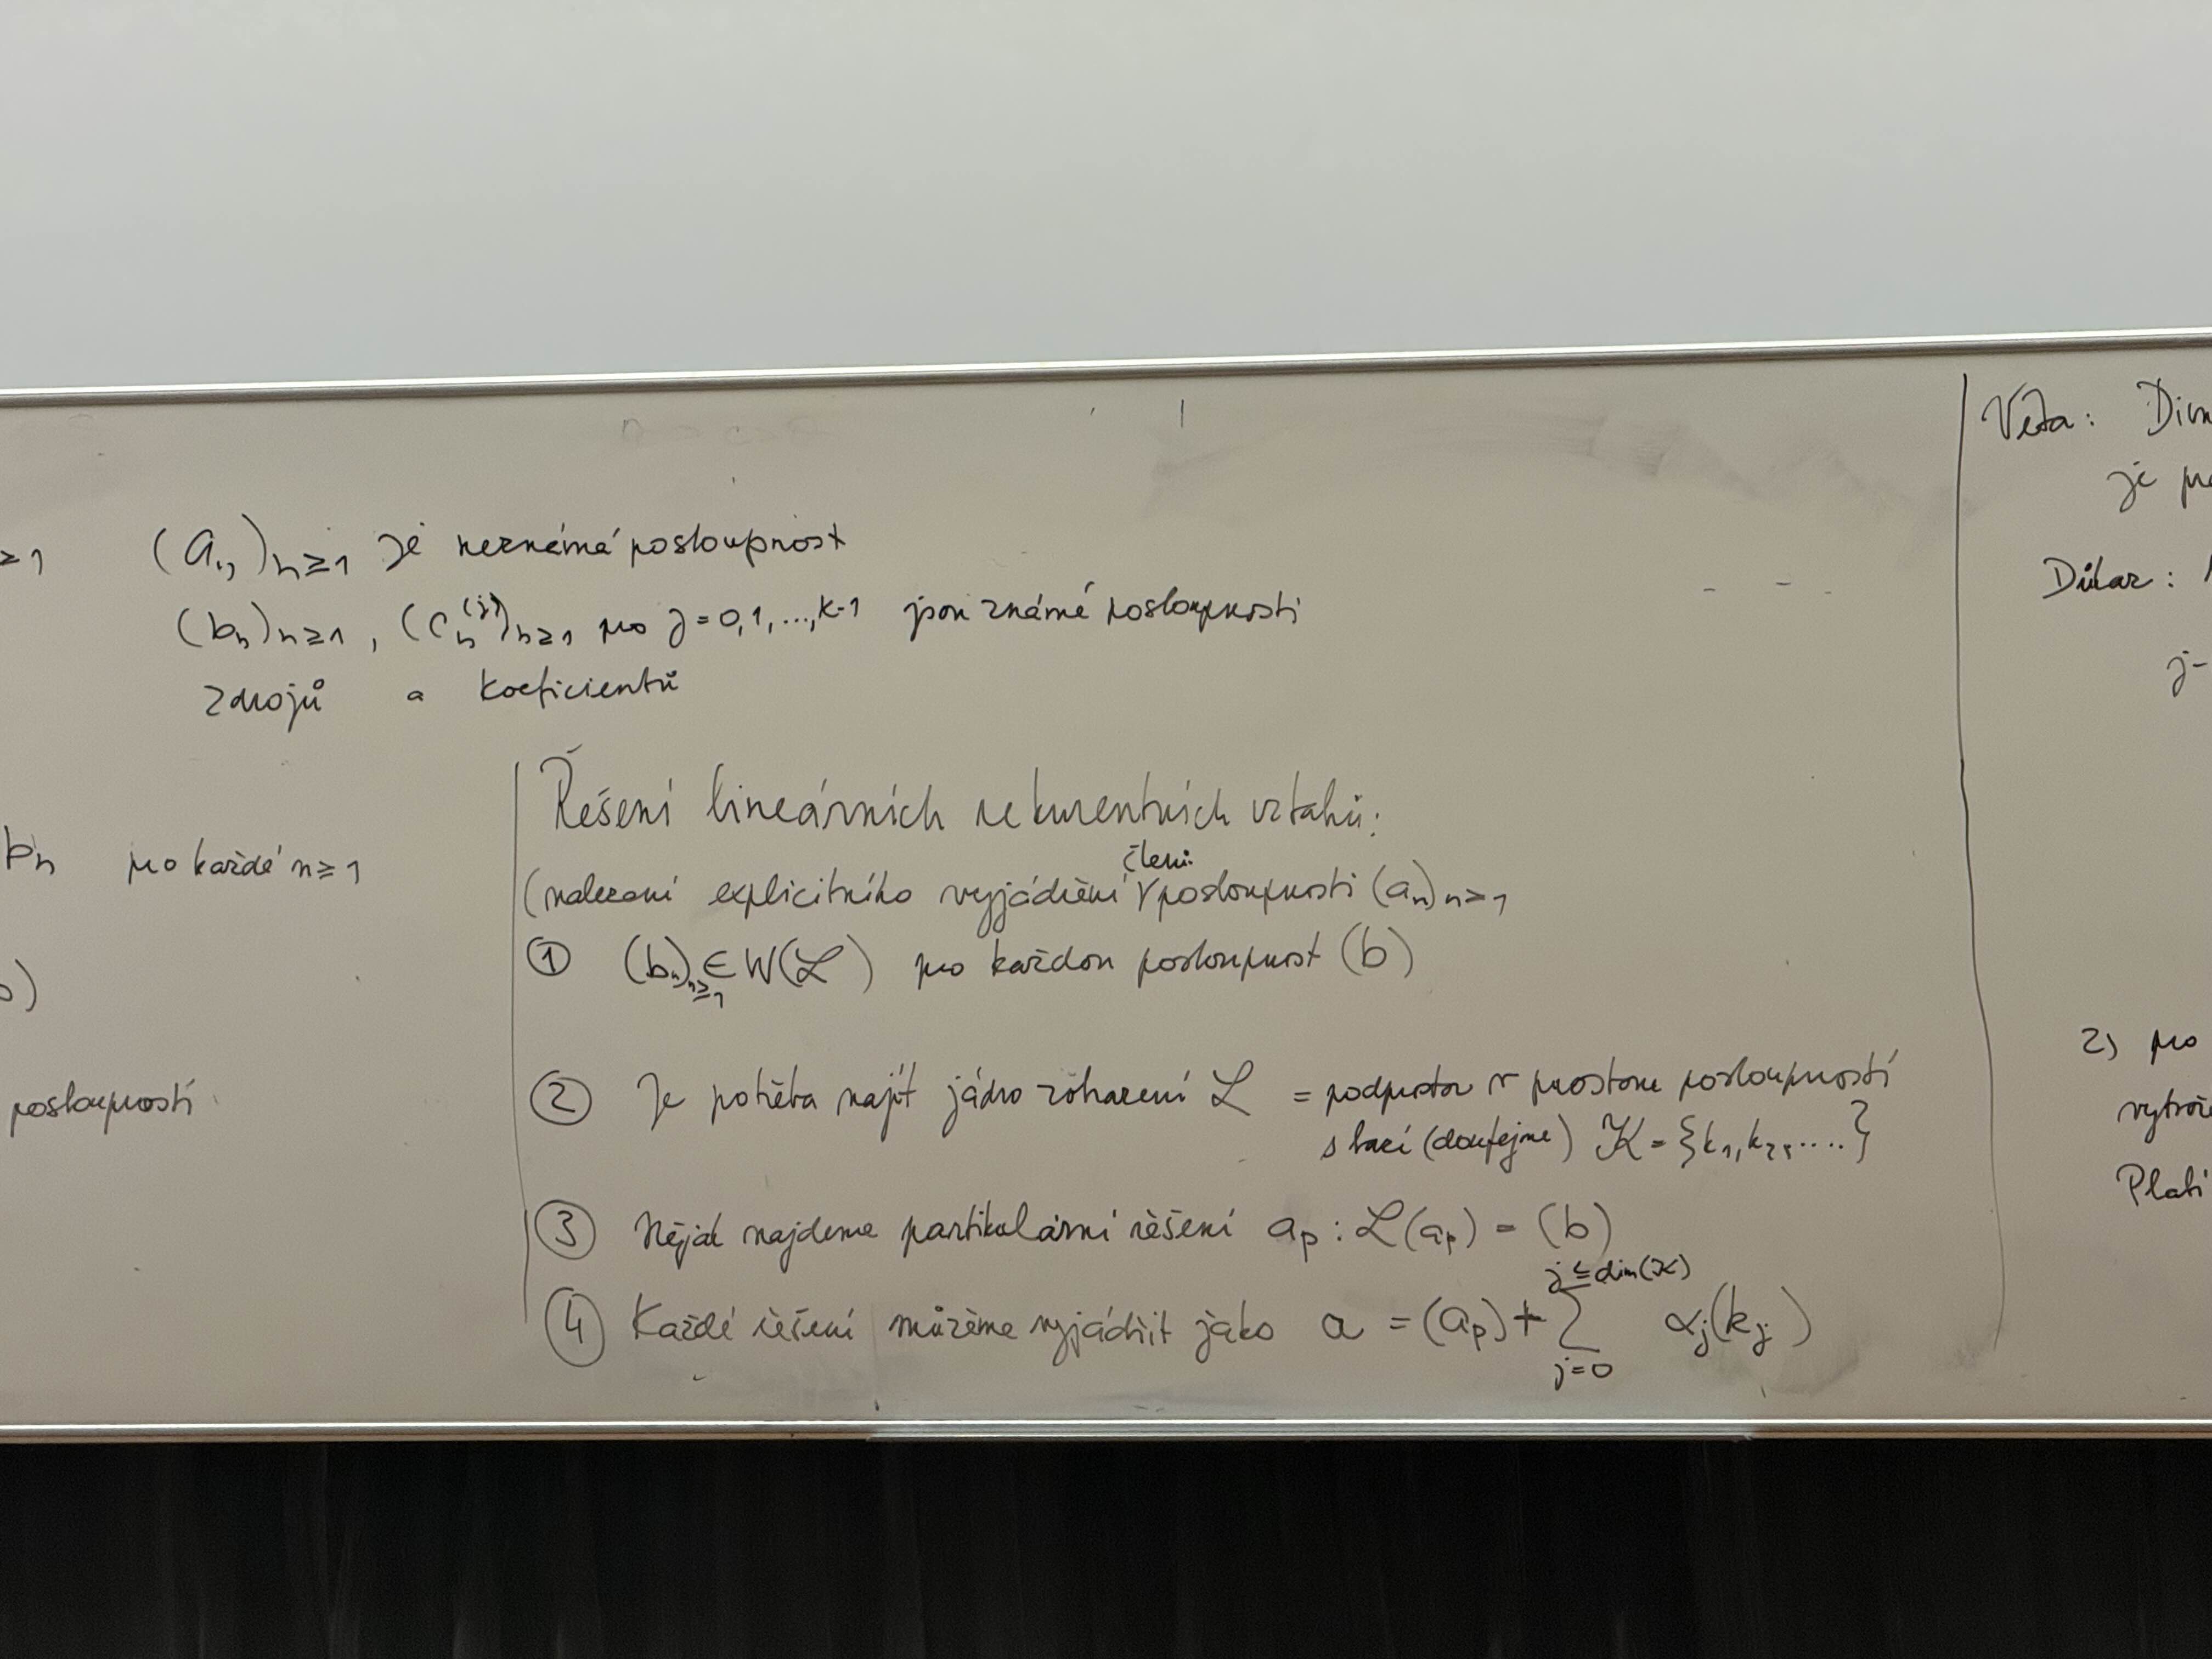 ≥1
(aₙ)ₙ≥₁ je neznámá posloupnost
(bₙ)ₙ≥₁, (cₙ⁽ʲ⁾)ₙ≥₁ pro j=0,1,...,k-1 jsou známé posloupnosti
zdrojů a koeficientů
bₙ pro každé n≥1
)
posloupností
Řešení lineárních rekurentních vztahů:
(nalezení explicitního vyjádření členů posloupnosti (aₙ)ₙ≥₁
① (bₙ)ₙ≥₁ ∈ W(ℒ) pro každou posloupnost (b)
② Je potřeba najít jádro zobrazení ℒ = podprostor v prostoru posloupností
s bází (doufejme) 𝒦 = {k₁, k₂, ....}
③ Nějak najdeme partikulární řešení aₚ : ℒ(aₚ) = (b)
④ Každé řešení můžeme vyjádřit jako a = (aₚ) + ∑_{j=0}^{j≤dim(𝒦)} αⱼ(kⱼ)
Věta:
je
Důkaz:
j-
2) pro
Platí